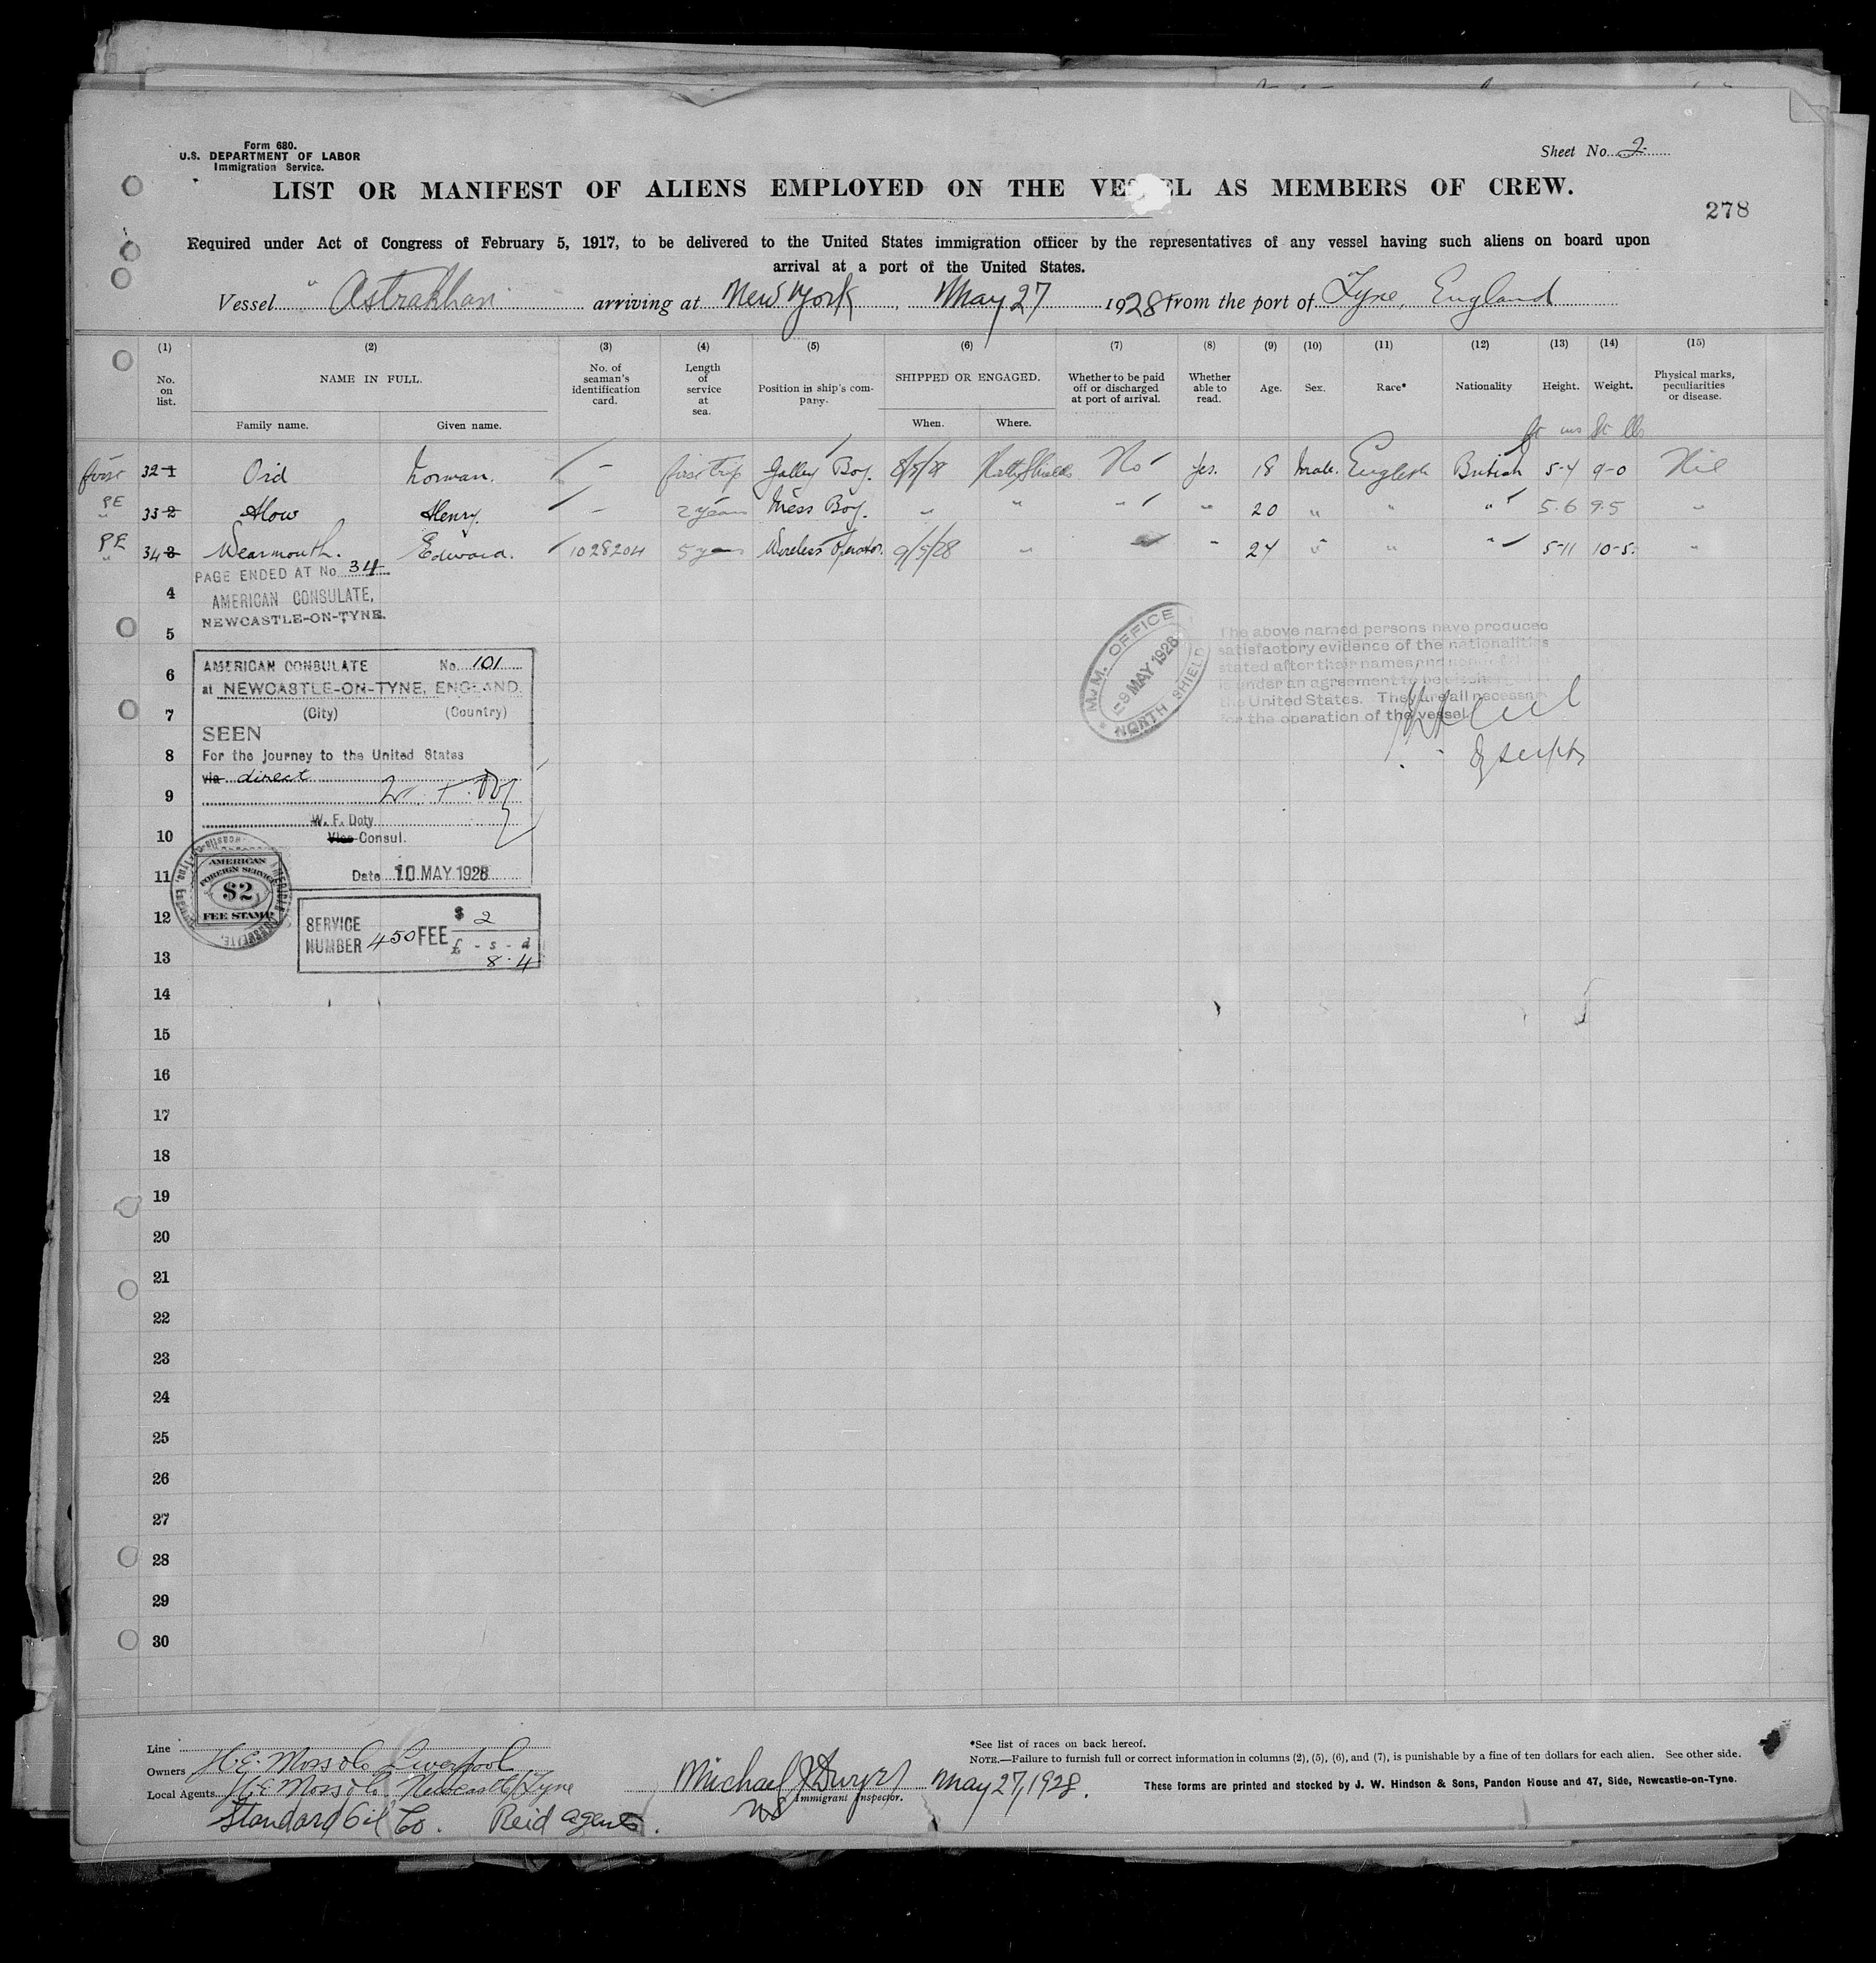 Form 680.
U.S. DEPARTMENT OF LABOR
Immigration Service.
Sheet No. 2
LIST OR MANIFEST OF ALIENS EMPLOYED ON THE VESSEL AS MEMBERS OF CREW.
278
Required under Act of Congress of February 5, 1917, to be delivered to the United States immigration officer by the representatives of any vessel having such aliens on board upon
arrival at a port of the United States.
Vessel "Astrakhan" arriving at New York, May 27 1928 from the port of Tyne, England
(1) (2) (3) (4) (5) (6) (7) (8) (9) (10) (11) (12) (13) (14) (15)
No. on list. NAME IN FULL. Family name. Given name. No. of seaman's identification card. Length of service at sea. Position in ship's company. SHIPPED OR ENGAGED. When. Where. Whether to be paid off or discharged at port of arrival. Whether able to read. Age. Sex. Race* Nationality Height. Weight. Physical marks, peculiarities or disease.
ft ins St lbs
first 32 1 Ord Norman. — first trip Galley Boy. 8/5/28 North Shields No Yes. 18 Male. English British 5-4 9-0 Nil
PE " 33 2 How Henry. — 2 years Mess Boy. " " " " 20 " " " 5.6 9.5 "
PE " 34 3 Wearmouth. Edward. 1028204 5 years Wireless Operator. 9/5/28 " " " 24 " " " 5-11 10-5. "
PAGE ENDED AT No. 34
AMERICAN CONSULATE,
NEWCASTLE-ON-TYNE.
AMERICAN CONSULATE No. 101
at NEWCASTLE-ON-TYNE, ENGLAND.
(City) (Country)
SEEN
For the journey to the United States
via direct
W. F. Doty
W. F. Doty
Vice Consul.
Date 10 MAY 1928
AMERICAN
FOREIGN SERVICE
$2
FEE STAMP
SERVICE NUMBER 450 FEE $ 2
£ - s - d
8 . 4
M.M. OFFICE
9 MAY 1928
NORTH SHIELDS
The above named persons have produced
satisfactory evidence of the nationalities
stated after their names and none of
is under an agreement to be
the United States. They are all necessary
for the operation of the vessel.
4
5
6
7
8
9
10
11
12
13
14
15
16
17
18
19
20
21
22
23
24
25
26
27
28
29
30
Line
Owners H. E. Moss & Co Liverpool
Local Agents H. E. Moss & Co. Newcastle/Tyne
Standard Oil Co. Reid agents.
Michael J Dwyer May 27, 1928.
Immigrant Inspector.
*See list of races on back hereof.
NOTE.—Failure to furnish full or correct information in columns (2), (5), (6), and (7), is punishable by a fine of ten dollars for each alien. See other side.
These forms are printed and stocked by J. W. Hindson & Sons, Pandon House and 47, Side, Newcastle-on-Tyne.